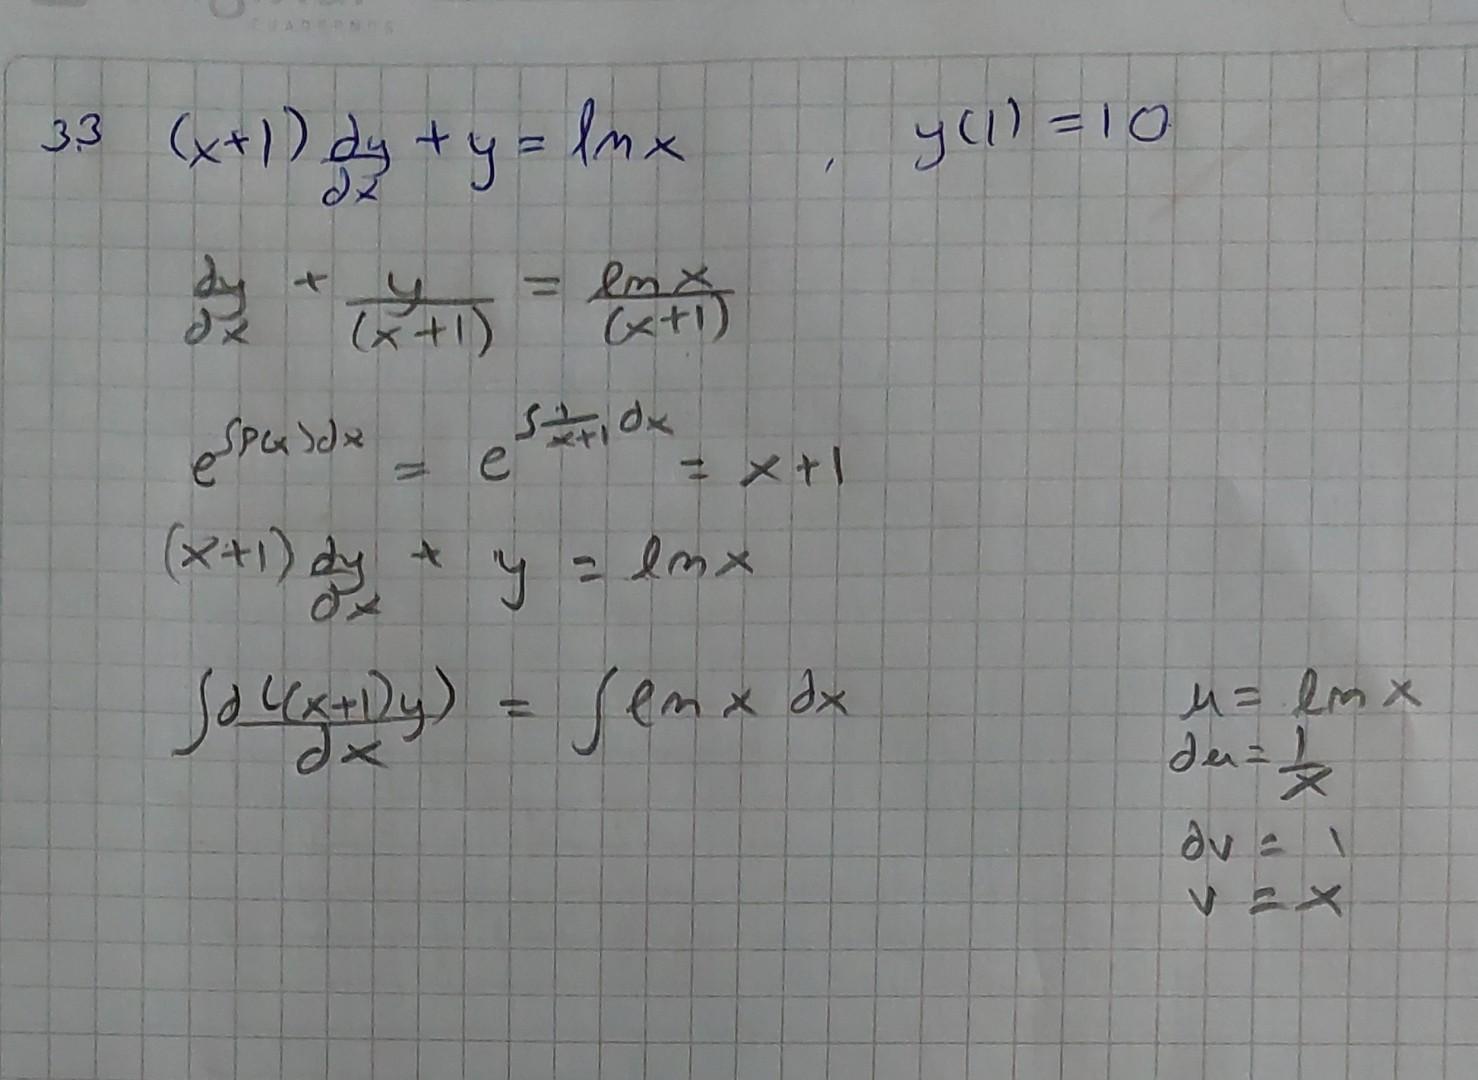 CUADERNOS
33 (x+1) dy/dx + y = ln x , y(1) = 10
dy/dx + y/(x+1) = ln x/(x+1)
e^∫P(x)dx = e^∫1/(x+1) dx = x+1
(x+1) dy/dx + y = ln x
∫d((x+1)y)/dx = ∫ ln x dx
u = ln x
du = 1/x
dv = 1
v = x